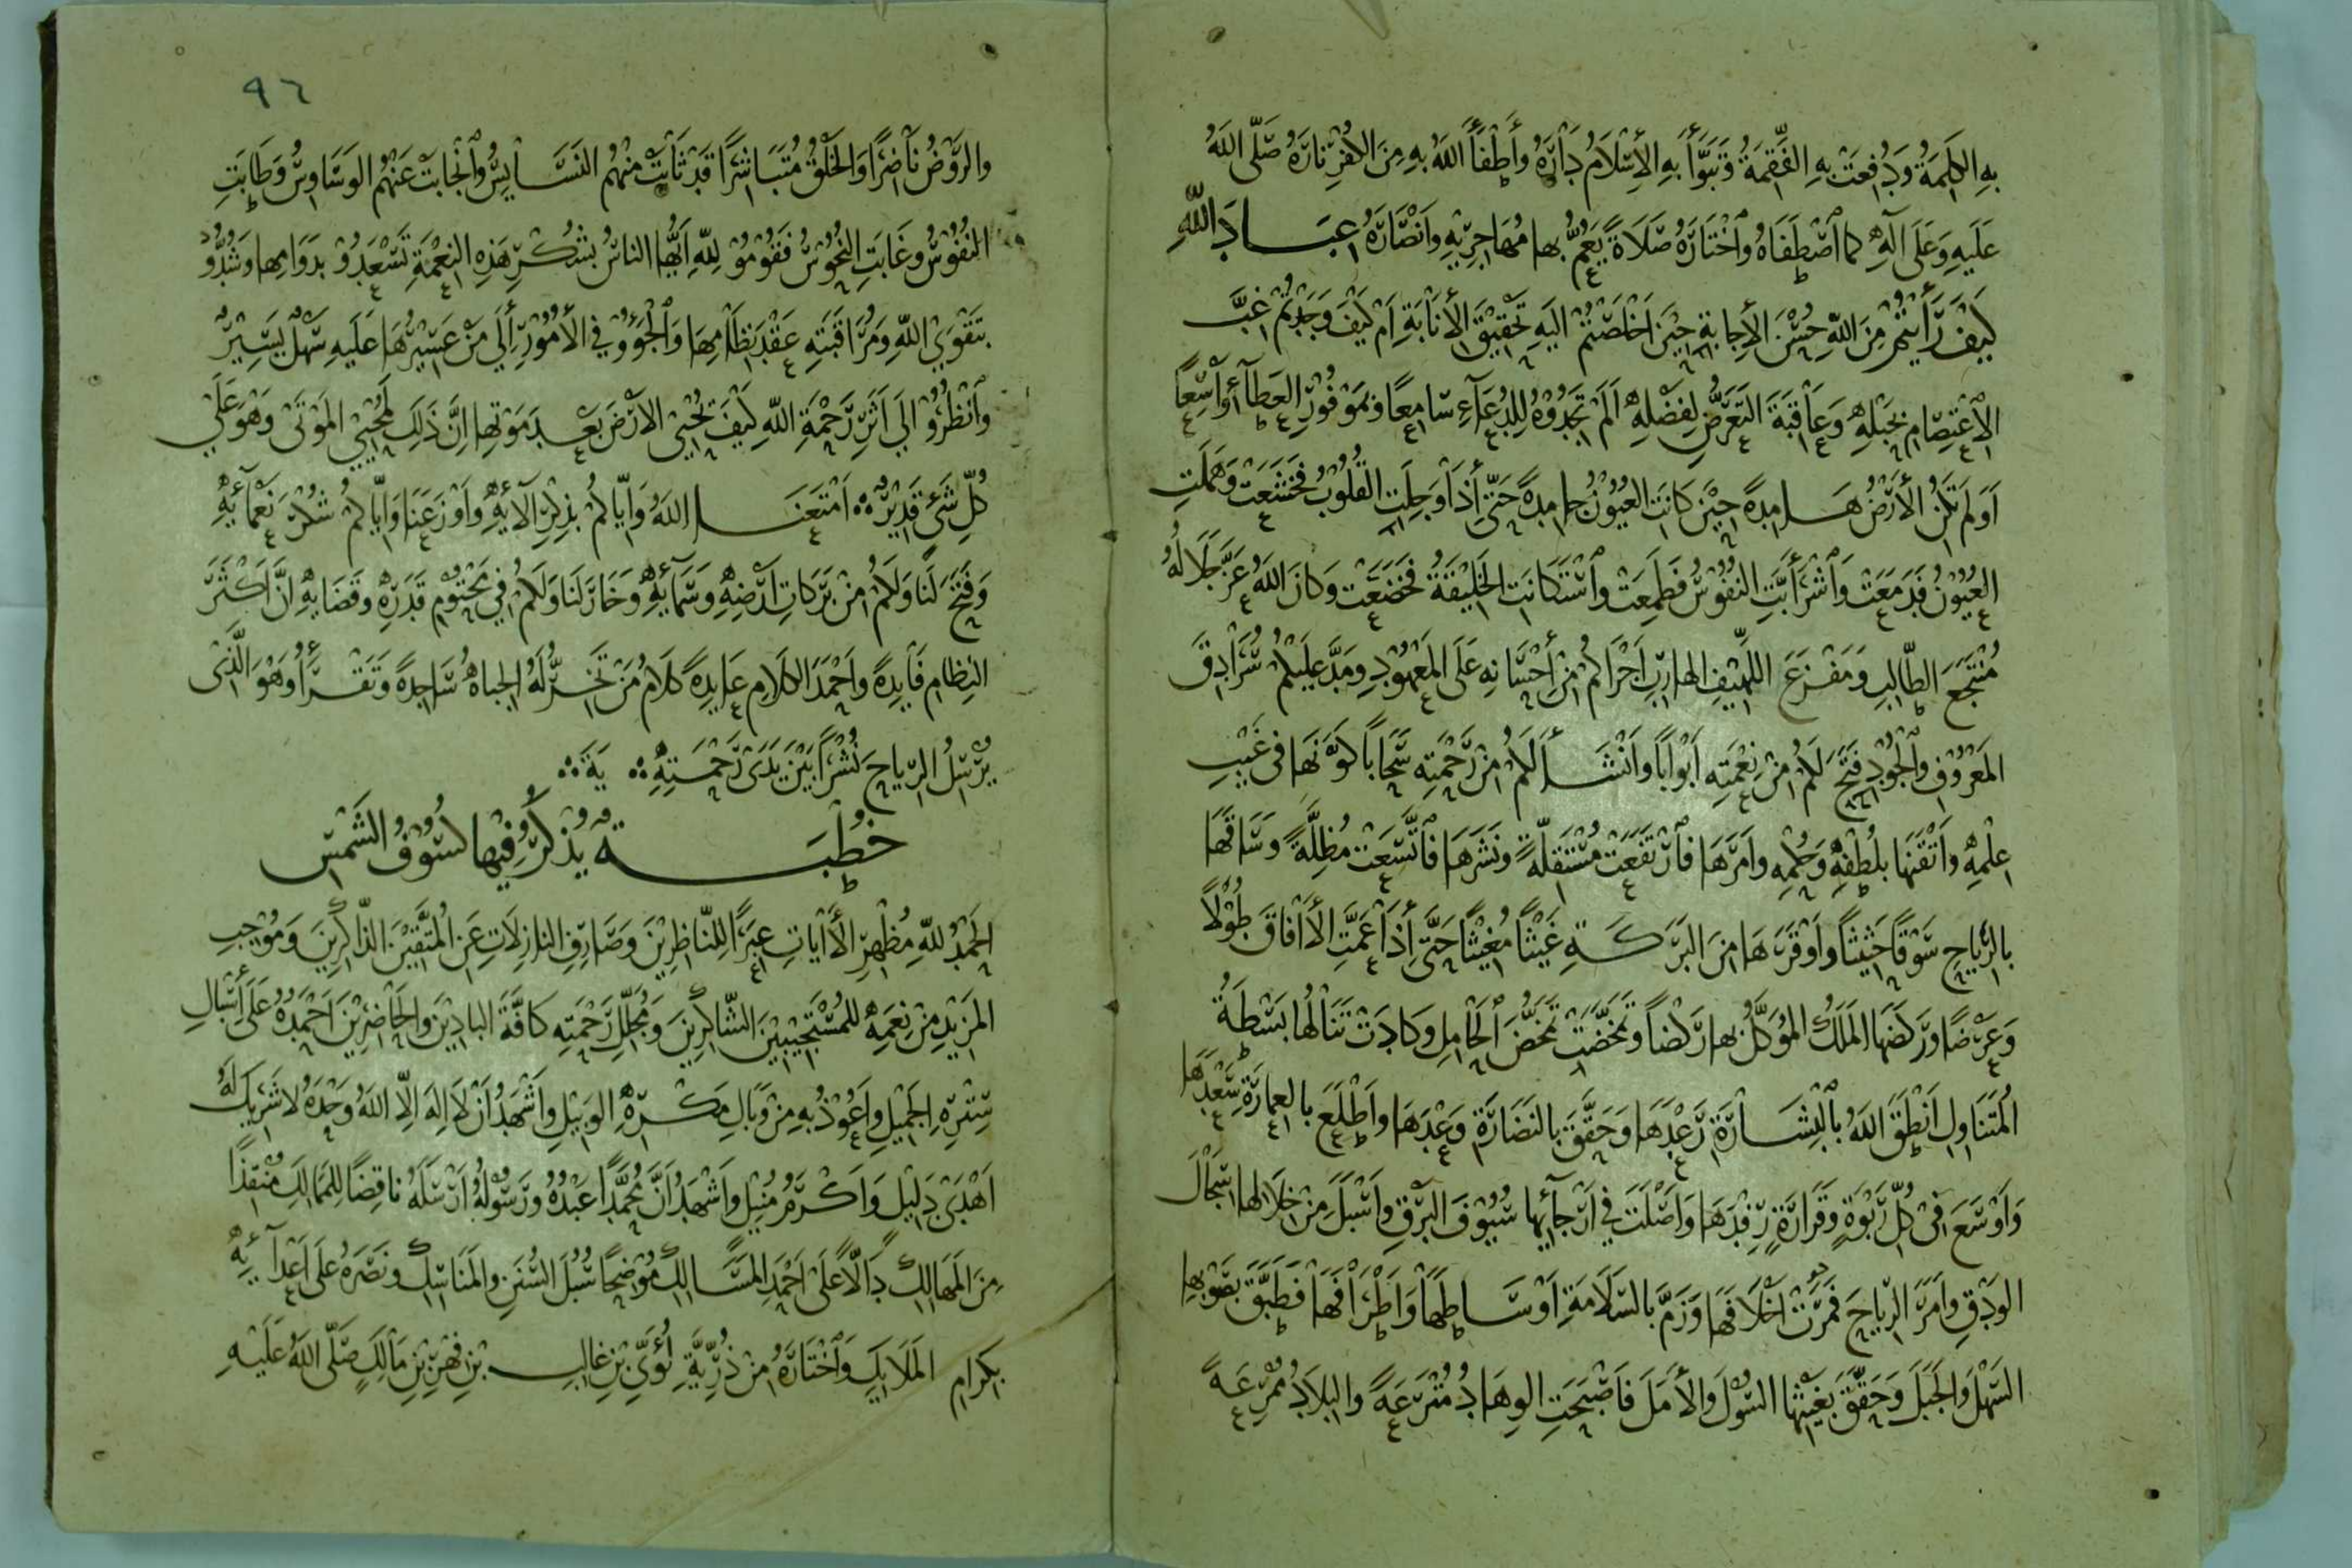 بِهِ الكَلِمَةُ وَدُفِعَتْ بِهِ النَّقِمَةُ وَتَبَوَّأَ بِهِ الأِسْلَامُ دَارَهُ وأَطْفَأَ اللهُ بِهِ مِنَ الكُفْرِ نَارَهُ صَلَّى اللهُ
عَلَيهِ وَعَلَى آلِهِ كما اصْطَفَاهُ واخْتَارَهُ صَلَاةً يَعُمُّ بها مُهَاجِرِيْهِ وَأَنْصَارَهُ عِبَادَ اللهِ
كَيْفَ رَأَيتُمْ مِنَ اللهِ حُسْنَ الأِجابةِ حِيْنَ أَخْلَصْتُمْ اليَهِ تَحْقِيْقَ الأِنَابَةِ أَمْ كَيْفَ وَجَدْتُمْ غِبَّ
الأِعْتِصَامِ بحَبْلِهِ وَعَاقِبَةَ التَعَرُّضِ لِفَضْلِهِ أَلَمْ تَجِدُوْهُ لِلدُعَآءِ سَامِعًا وبمَوْفُوْرِ العَطآءِ وَاسِعًا
أَوَلَمْ تَكُنِ الأَرْضُ هَامِدَةً حِيْنَ كَانَتِ العُيُوْنُ جامِدةً حَتَّى إِذَا وَجِلَتِ القُلُوْبُ فَخَشَعَتْ وَهَمَلَتِ
العُيُوْنُ فَدَمَعَتْ وَاشْرَأَبَّتِ النُفُوْسُ فَطَمِعَتْ واسْتَكَانَتِ الخَلِيْقَةُ فَخَضَعَتْ وَكانَ اللهُ عَزَّ جَلَالُهُ
مُنْتَجَعَ الطَّالِبِ وَمَفْزَعَ اللَّهِيْفِ الهارِبِ أَجْرَاكُمْ مِنْ إِحْسَانِهِ عَلَى المَعْهُوْدِ وَمَدَّ عَلَيْكُمْ سُرَادِقَ
المَعْرُوْفِ والجُوْدِ فَتَحَ لَكُمْ مِنْ نِعْمَتِهِ أَبْوَابًا وأَنْشَأَ لَكُمْ مِنْ رَحْمَتِهِ سَحَابًا كَوَّنَهَا فى غَيْبِ
عِلْمِهِ وأَتْقَنَها بلُطْفِهِ وَحُكْمِهِ وأَمَرَهَا فَارْتَفَعَتْ مُسْتَقِلَّةً ونَشَرَهَا فَاتَّسَعَتْ مُظِلَّةً وَسَاقَهَا
بالرِّيَاحِ سَوْقًا حَثِيْثًا وأَوْقَرَهَا مِنَ البَرَكَةِ غَيْثًا مُغِيْثًا حَتَّى إِذَا عَمَّتِ الأَفَاقَ طُوْلًا
وَعَرْضًا ورَكَضَهَا المَلَكُ المُوَكَّلُ بها رَكْضاً وتَمَخَّضَتْ تَمَخُّضَ الحَامِلِ وكَادَتْ تَنَالُها بَسْطَةُ
المُتَنَاوِلِ أَنْطَقَ اللهُ بِالْبِشَارَةِ رَعْدَهَا وَحَقَّقَ بالنَضَارَةِ وَعْدَهَا وأَطْلَعَ بالعِمَارَةِ سَعْدَهَا
وَأَوْسَعَ فى كُلِّ رَبْوَةٍ وَقَرَارَةٍ رِفْدَهَا وَأَصْلَتَ فِي أَرْجَائِهَا سُيُوْفَ البَرْقِ وأَسْبَلَ مِنْ خِلَالِها سِجَالَ
الوَدْقِ وأَمَرَّ الرِّيَاحَ فمَرَتْ أَخْلَافَهَا وَزَمَّ بالسَلَامَةِ أَوْسَاطَهَا وَأَطْرَافَهَا فَطَبَّقَ بصَوْبِها
السَهْلَ وَالجَبَلَ وَحَقَّقَ بغَيْثِها السُوْلَ وَالأَمَلَ فَأَصْبَحَتِ الوِهَادُ مُتْرَعَةً والبِلَادُ مُمْرِعَةً
٩٦
والرَّوْضُ نَاضِرًا وَالخَلْقُ مُتَبَاشِرًا قَدْ ثَابَتْ مِنْهُمُ النَسَايِسُ وانْجَابَتْ عَنْهُمُ الوَسَاوِسُ وَطَابَتِ
النُفُوْسُ وَغَابَتِ النُحُوْسُ فَقُوْمُوْا لِلهِ أَيُّهَا الناسُ بشُكْرِ هَذِهِ النِعْمَةِ تَسْعَدُوْا بدَوَامِها وَشُدُّوْا
بتَقْوَى اللهِ وَمُرَاقَبَتِهِ عَقْدَ نِظَامِهَا وَالْجَؤُوْا فِي الأُمُوْرِ إِلَى مَنْ عَسِيْرُهَا عَلَيهِ سَهْلٌ يَسِيْرٌ
وانْظُرُوْا الَى أَثَرِ رَحْمَةِ اللهِ كَيْفَ يُحْيِى الأَرْضَ بَعْدَ مَوْتِها إِنَّ ذَلِكَ لَمُحْيِي المَوْتَى وَهُوَ عَلَى
كُلِّ شَيْءٍ قَدِيْرٌ أَمْتَعَنَا اللهُ وَإِيَّاكُمْ بذِكْرِ آلَائِهِ وأَوْزَعَنَا وَإِيَّاكُمْ شُكْرَ نَعْمَائِهِ
وَفَتَحَ لَنَا وَلَكُمْ مِنْ بَرَكَاتِ أَرْضِهِ وَسَمَائِهِ وَخَارَ لَنَا وَلَكُمْ فِي مَحْتُوْمِ قَدَرِهِ وقَضَايِهِ إِنَّ أَكْثَرَ
النِظَامِ فَايِدةً وأَحْمَدَ الكَلَامِ عَايِدةً كَلَامُ مَنْ تَخِرُّ لَهُ الجِبَاهُ سَاجِدةً وَتَقْرَأُ وَهُوَ الَّذِى
يُرْسِلُ الرِّيَاحَ نُشُرًا بَيْنَ يَدَى رَحْمَتِهِ يَةَ
خُطْبَةٌ يُذْكَرُ فِيْها كُسُوْفُ الشَمْسِ
الحَمْدُ للهِ مُظْهِرِ الأَيَاتِ عِبَرًا لِلنَّاظِرِيْنَ وَصَارِفِ النازِلَاتِ عَنِ المُتَّقِيْنَ الذَّاكِرِيْنَ وَمُوْجِبِ
المَزِيْدِ مِنْ نِعَمِهِ للمُسْتَجِيْبِيْنَ الشَّاكِرِيْنَ وَمُجَلِّلِ رَحْمَتِهِ كَافَّةَ البَادِيْنَ والحَاضِرِيْنَ أَحْمَدُهُ عَلَى أَسْبَالِ
سِتْرِهِ الجَمِيْلِ وأَعُوْذُ بِهِ مِنْ وَبَالِ مَكْرِهِ الوَبِيْلِ وأَشْهَدُ أَنْ لَا إِلهَ إِلَّا اللهُ وَحْدَهُ لَا شَرِيكَ لَهُ
أَهْدَى دَلِيْلٍ وَأَكْرَمُ مُنِيْلٍ وأَشْهَدُ أَنَّ مُحَمَّدًا عَبْدُهُ وَرَسُوْلُهُ أَرْسَلَهُ نَاقِضًا لِلمَمَالِكِ مُنْقِذًا
مِنَ المَهَالِكِ دَالًّا عَلَى أَحْمَدِ المَسَالِكِ مُوْضِحًا سُبُلَ السُنَنِ والمَنَاسِكِ ونَصَرَهُ عَلَى أَعْدَآئِهِ
بكِرَامِ المَلَايِكِ وَاخْتَارَهُ مِنْ ذُرِّيَّةِ لُؤَيِّ بْنِ غَالِبِ بْنِ فِهْرِ بْنِ مَالِكٍ صَلَّى اللهُ عَلَيْهِ